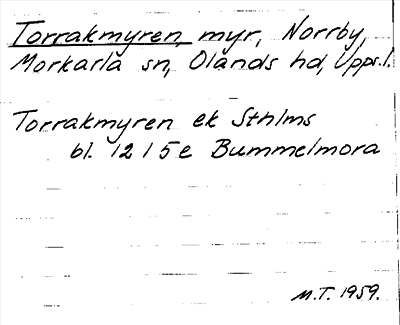 Torrakmyren, myr, Norrby,
Morkarla sn, Olands hd, Upps.l.
Torrakmyren ek Sthlms
bl. 12 I 5 e Bummelmora
M.T. 1959.